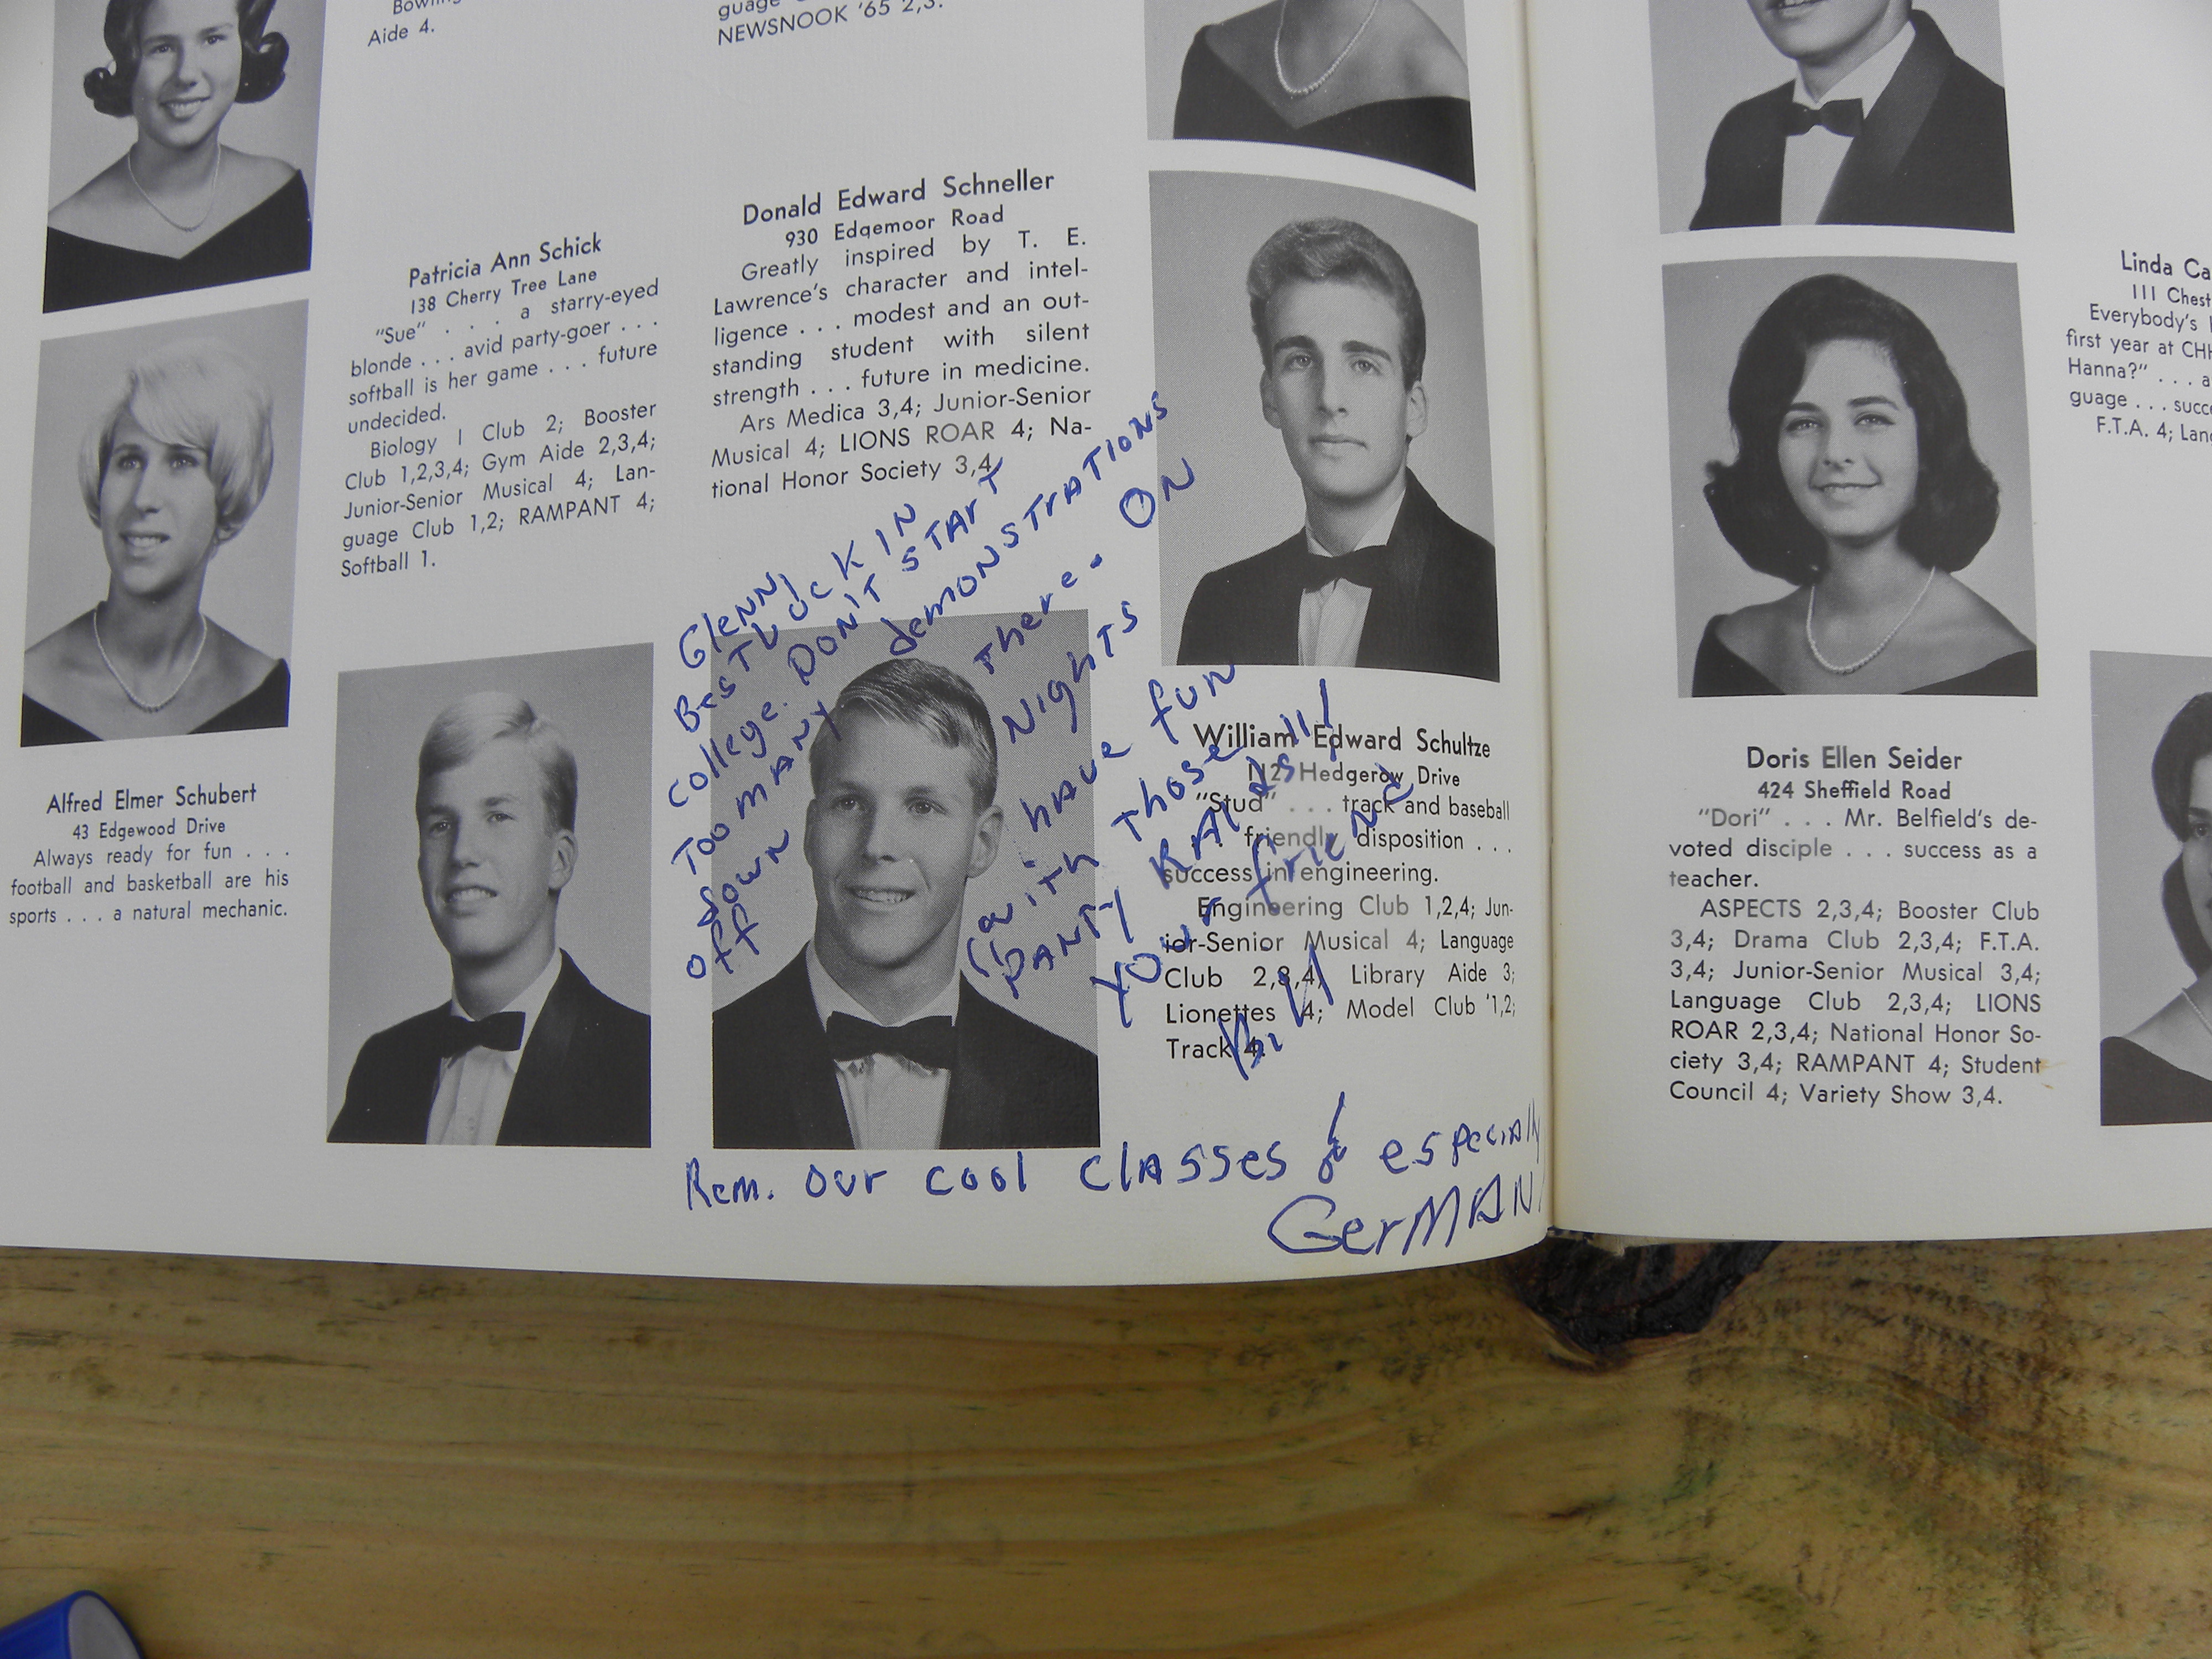 Aide 4.
NEWSNOOK '65 2,3.
Patricia Ann Schick
138 Cherry Tree Lane
"Sue" . . . a starry-eyed
blonde . . . avid party-goer . . .
softball is her game . . . future
undecided.
Biology I Club 2; Booster
Club 1,2,3,4; Gym Aide 2,3,4;
Junior-Senior Musical 4; Lan-
guage Club 1,2; RAMPANT 4;
Softball 1.
Donald Edward Schneller
930 Edgemoor Road
Greatly inspired by T. E.
Lawrence's character and intel-
ligence . . . modest and an out-
standing student with silent
strength . . . future in medicine.
Ars Medica 3,4; Junior-Senior
Musical 4; LIONS ROAR 4; Na-
tional Honor Society 3,4.
Alfred Elmer Schubert
43 Edgewood Drive
Always ready for fun . . .
football and basketball are his
sports . . . a natural mechanic.
Glenn,
Best Luck in
College. Don't start
too many demonstrations
down there. on
off nights
have fun
with those
panty raids!!
Your friend
Bill
Rem. our cool classes & especially
German
William Edward Schultze
112 Hedgerow Drive
"Stud" . . . track and baseball
. . . friendly disposition . . .
success in engineering.
Engineering Club 1,2,4; Jun-
ior-Senior Musical 4; Language
Club 2,3,4; Library Aide 3;
Lionettes 4; Model Club 1,2;
Track 4.
Doris Ellen Seider
424 Sheffield Road
"Dori" . . . Mr. Belfield's de-
voted disciple . . . success as a
teacher.
ASPECTS 2,3,4; Booster Club
3,4; Drama Club 2,3,4; F.T.A.
3,4; Junior-Senior Musical 3,4;
Language Club 2,3,4; LIONS
ROAR 2,3,4; National Honor So-
ciety 3,4; RAMPANT 4; Student
Council 4; Variety Show 3,4.
Linda Ca
111 Chest
Everybody's
first year at CHH
Hanna?" . . . a
guage . . . succe
F.T.A. 4; Lang